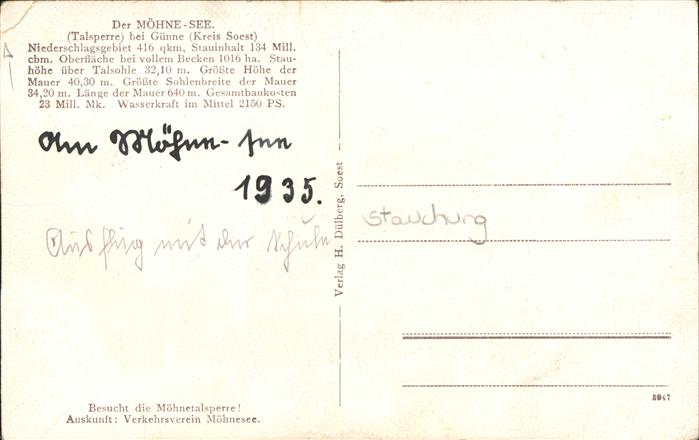 Der MÖHNE-SEE.
(Talsperre) bei Günne (Kreis Soest)
Niederschlagsgebiet 416 qkm, Stauinhalt 134 Mill.
cbm. Oberfläche bei vollem Becken 1016 ha. Stau-
höhe über Talsohle 32,10 m. Größte Höhe der
Mauer 40,30 m. Größte Sohlenbreite der Mauer
34,20 m. Länge der Mauer 640 m. Gesamtbaukosten
23 Mill. Mk. Wasserkraft im Mittel 2150 PS.
Am Möhne-see
1935.
Ausflug mit der Schule
Besucht die Möhnetalsperre!
Auskunft: Verkehrsverein Möhnesee.
Verlag H. Dülberg, Soest
Stauchung
5947